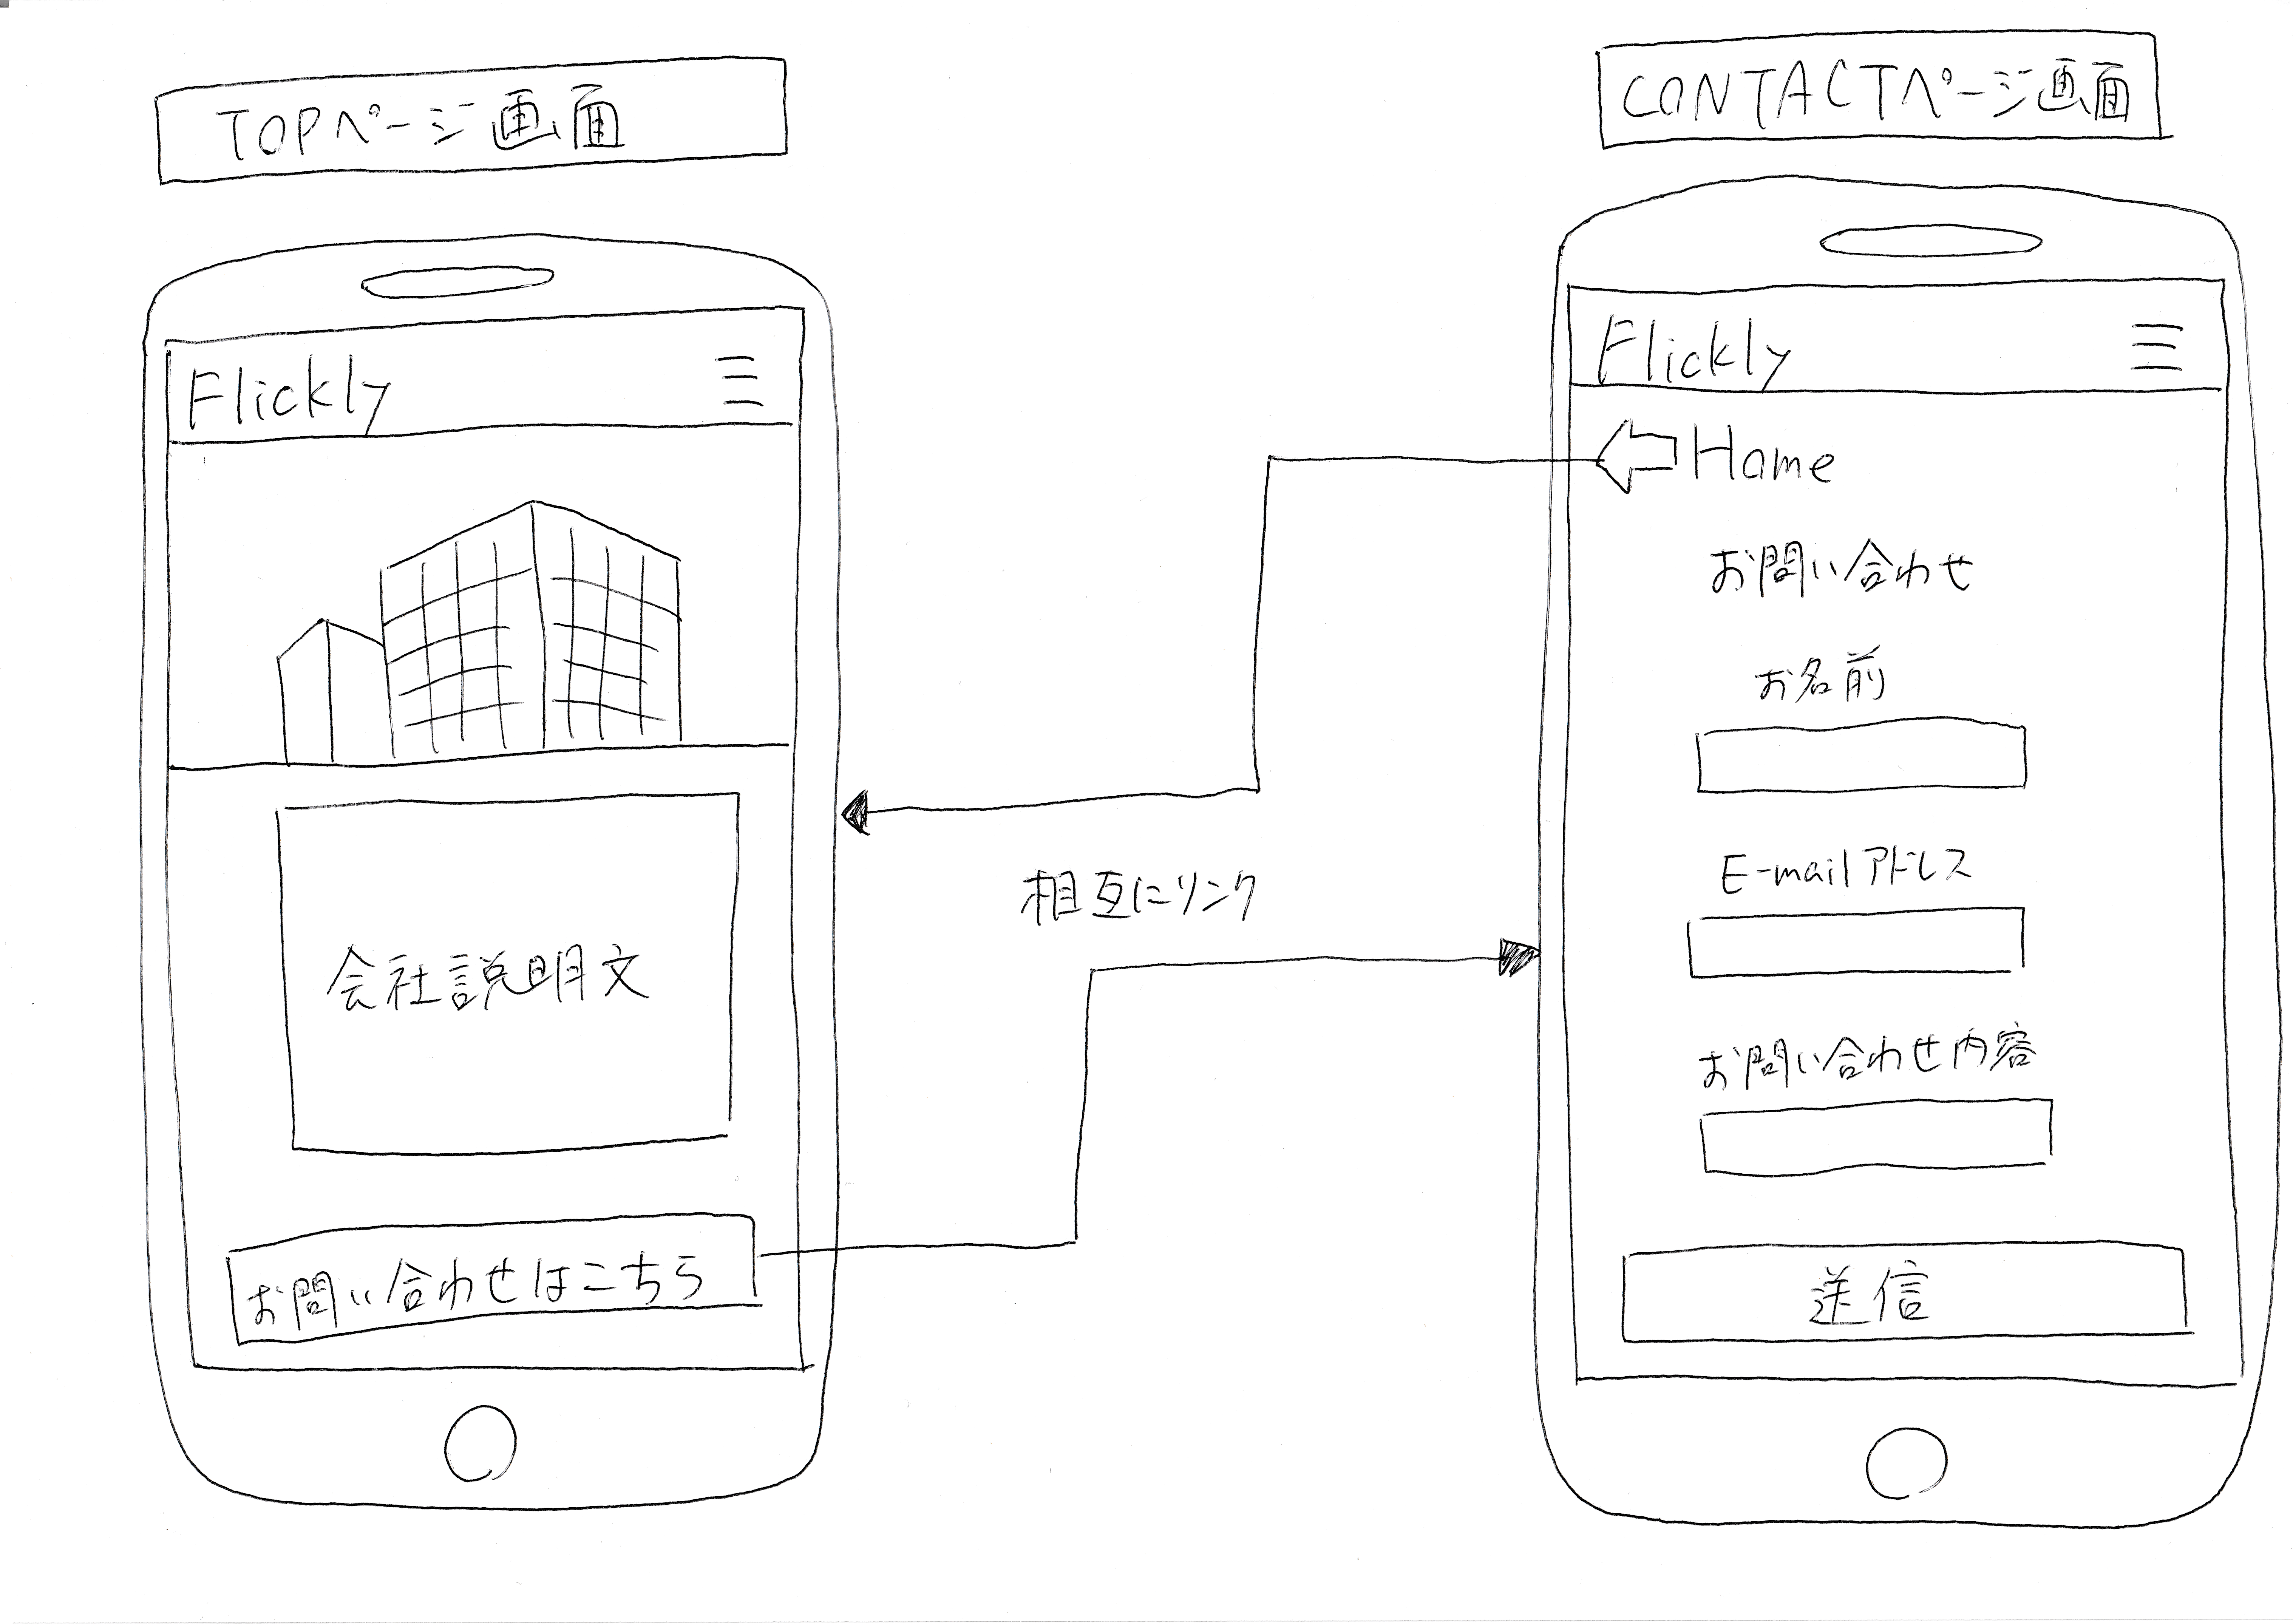 TOPページ画面
Flickly
会社説明文
お問い合わせはこちら
相互にリンク
CONTACTページ画面
Flickly
Home
お問い合わせ
お名前
E-mailアドレス
お問い合わせ内容
送信